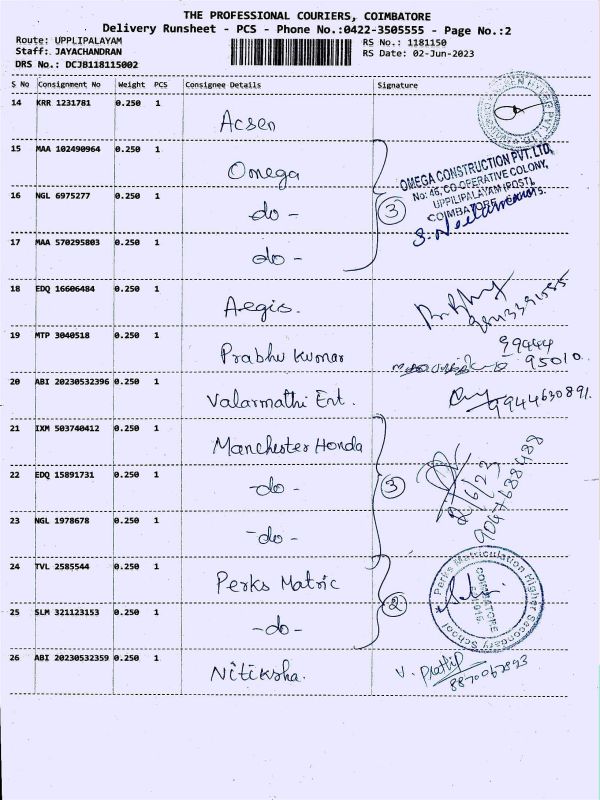 THE PROFESSIONAL COURIERS, COIMBATORE
Delivery Runsheet - PCS - Phone No.:0422-3505555 - Page No.:2
Route: UPPLIPALAYAM
RS No.: 1181150
Staff: JAYACHANDRAN
RS Date: 02-Jun-2023
DRS No.: DCJB118115002
S No Consignment No Weight PCS Consignee Details Signature
14 KRR 1231781 0.250 1 Acsen
15 MAA 102490964 0.250 1 Omega
OMEGA CONSTRUCTION PVT. LTD,
No: 46, CO-OPERATIVE COLONY,
UPPILIPALAYAM (POST),
COIMBATORE
16 NGL 6975277 0.250 1 -do-
3
17 MAA 570295803 0.250 1 -do-
18 EDQ 16606484 0.250 1 Aegis.
19 MTP 3040518 0.250 1 Prabhu kumar
99444
95010
20 ABI 20230532396 0.250 1 Valarmathi Ent.
9944630891.
21 IXM 503740412 0.250 1 Manchester Honda
22 EDQ 15891731 0.250 1 -do-
3
2/6/23
9047688488
23 NGL 1978678 0.250 1 -do-
24 TVL 2585544 0.250 1 Perks Matric
2
Perks Matriculation Higher Secondary School
COIMBATORE
25 SLM 321123153 0.250 1 -do-
26 ABI 20230532359 0.250 1 Nitiksha.
V. Prattip